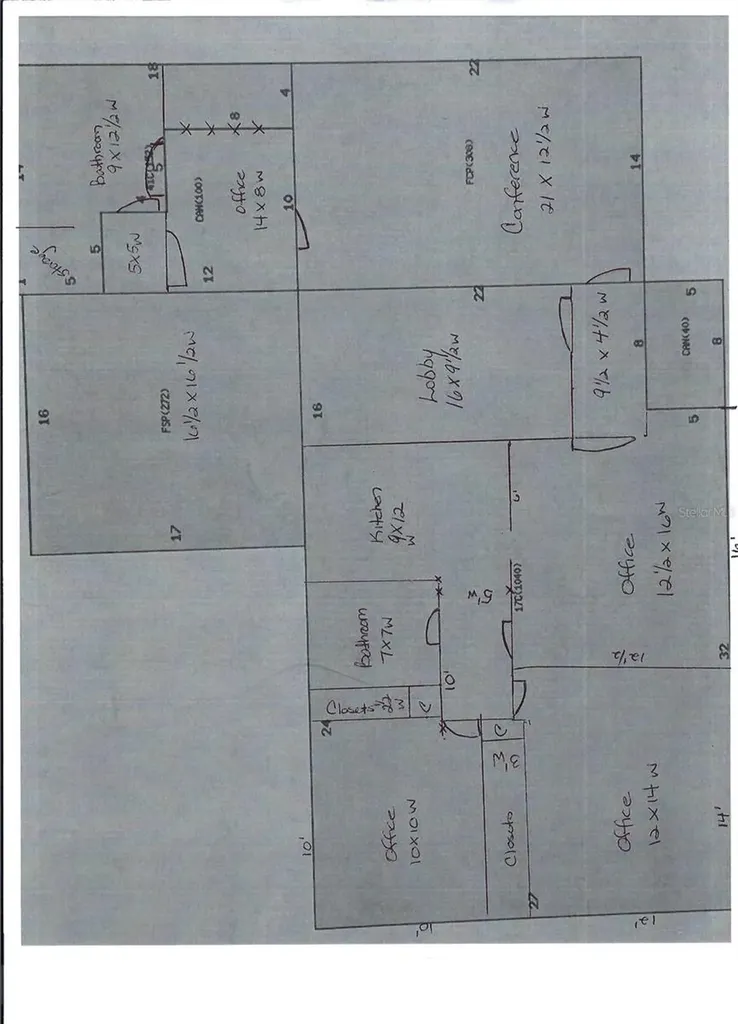 18
Bathroom
9 X 12 1/2 W
5
5
5 X 5 W
Storage
5
1
4
8
CAN(100)
Office
14 X 8 W
10
12
22
FCP(308)
Conference
21 X 12 1/2 W
14
16
FSP(272)
16 1/2 X 16 1/2 W
17
16
22
Lobby
16 X 9 1/2 W
9 1/2 X 4 1/2 W
8
5
CAN(40)
8
5
Kitchen
9 X 12
W
6'
Office
12 1/2 X 16 W
16'
Bathroom
7 X 7 W
17C(1040)
10'
32
Closets
C
24
C
Closets
Office
10 X 10 W
10'
10'
Office
12 X 14 W
14'
27